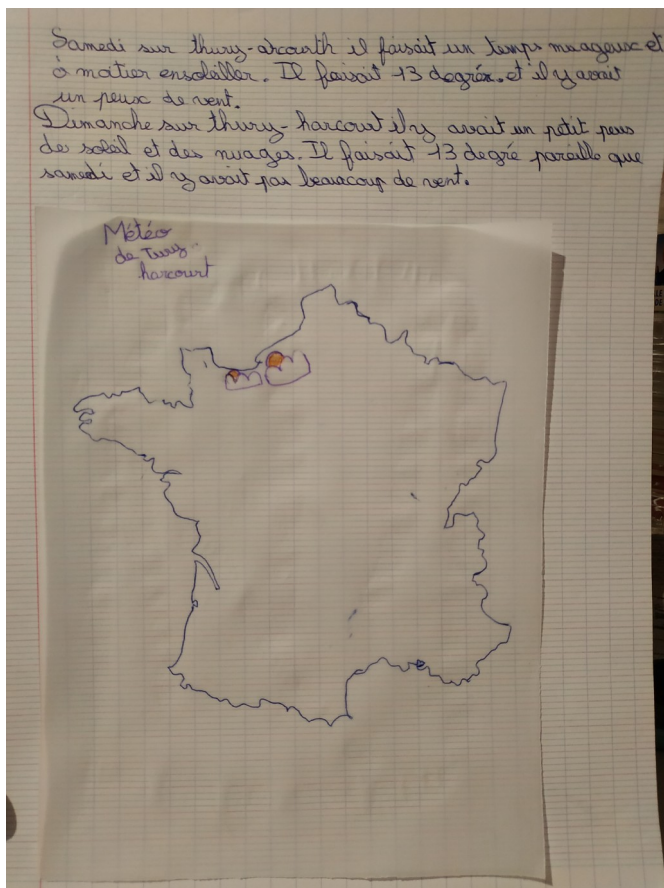 Samedi sur thury-arcourth il faisait un temps nuageux et
à moitier ensoleiller. Il faisait 13 degrés. et il y avait
un peux de vent.
Dimanche sur thury-harcourt il y avait un petit peus
de soleil et des nuages. Il faisait 13 degré pareille que
samedi et il y avait pas beaucoup de vent.
Météo
de Tury-
harcourt